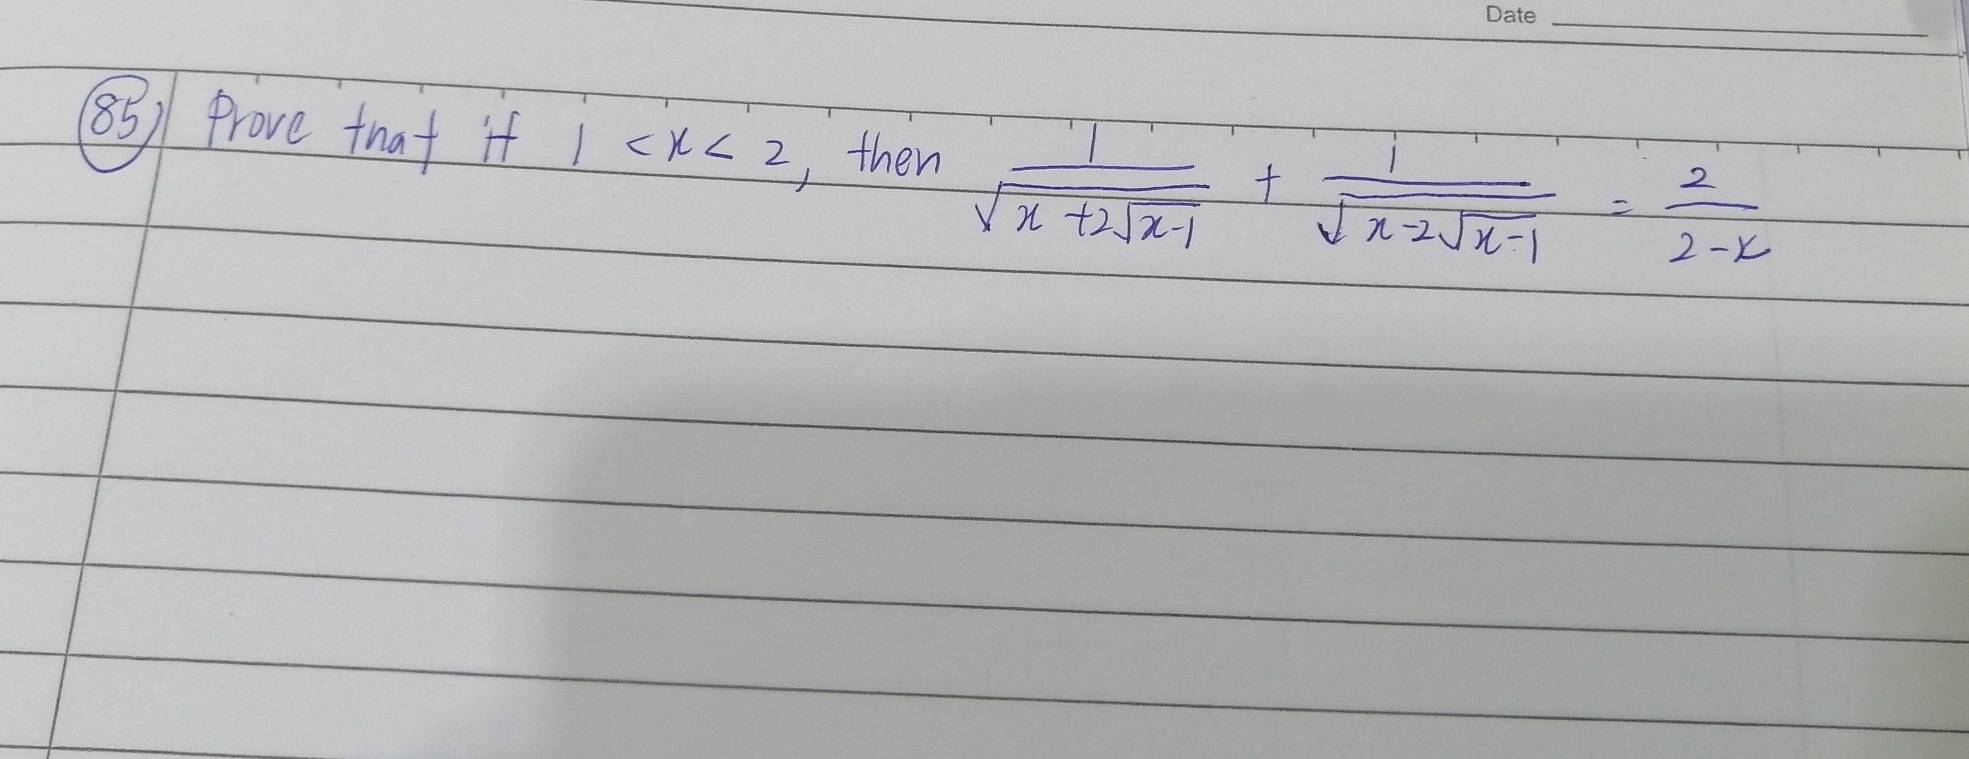 Date
85) Prove that if 1 < x < 2, then 1/√(x+2√(x-1)) + 1/√(x-2√(x-1)) = 2/(2-x)